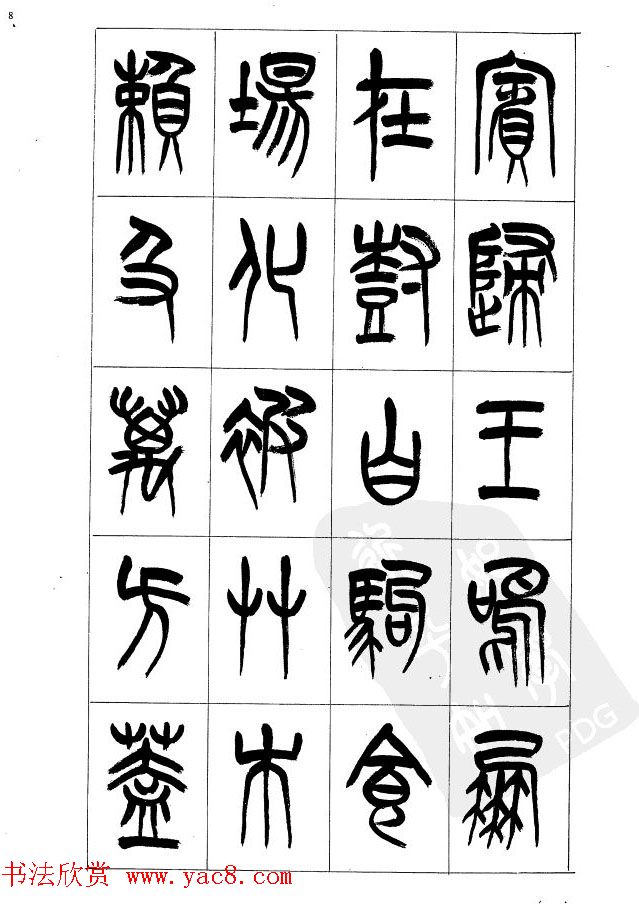 8
賓歸王鳴鳳
在樹白駒食
場化被草木
賴及萬方蓋
PDG
书法欣赏 www.yac8.com